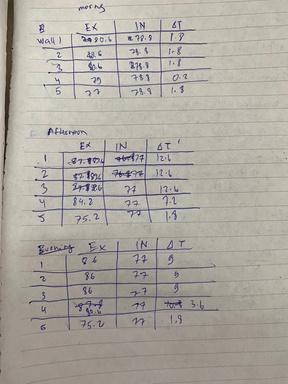 morng
B EX IN ΔT
Wall 1 80.6 78.8 1.8
2 80.6 78.8 1.8
3 80.6 78.8 1.8
4 79 78.8 0.2
5 77 78.8 1.8
Afternoon
EX IN ΔT
1 77 12.6
2 77 12.6
3 77 12.6
4 84.2 77 7.2
5 75.2 77 1.8
Evening EX IN ΔT
1 86 77 9
2 86 77 9
3 86 77 9
4 80.6 77 3.6
5 75.2 77 1.8